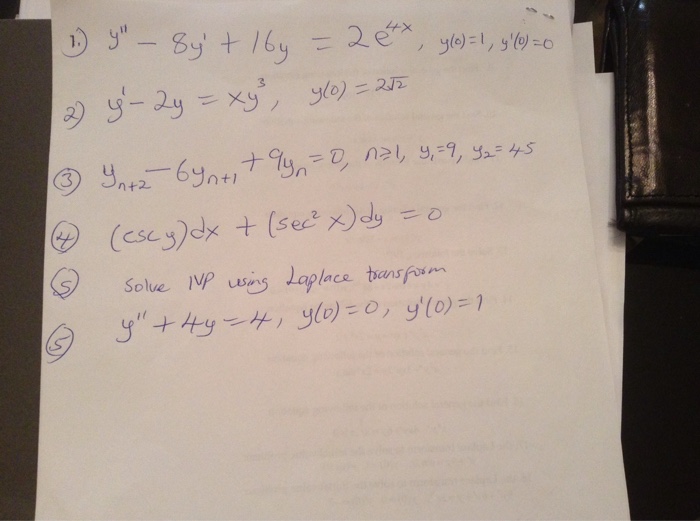 1.) y" - 8y' + 16y = 2e^{4x}, y(0)=1, y'(0)=0
2) y' - 2y = xy³, y(0) = 2√2
③ yₙ₊₂ - 6yₙ₊₁ + 9yₙ = 0, n≥1, y₁=9, y₂=45
④ (csc y)dx + (sec² x)dy = 0
⑤ Solve IVP using Laplace transform
⑤ y" + 4y = 4, y(0)=0, y'(0)=1